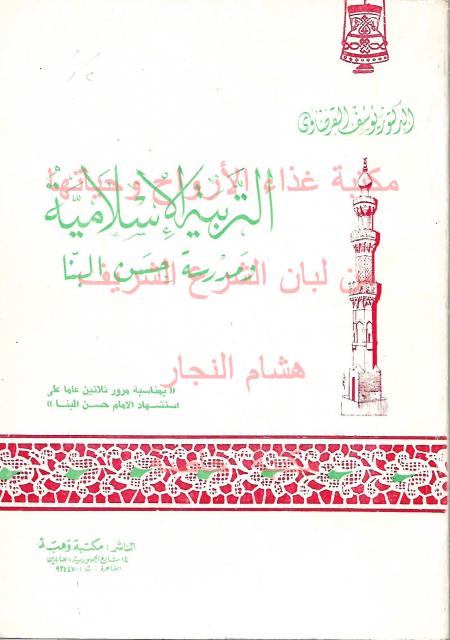 الدكتور يوسف القرضاوى
مكتبة غذاء الأرواح وحياتها
التربية الإسلامية
ومدرسة حسن البنا
لبان الشرع الشريف
هشام النجار
« بمناسبة مرور ثلاثين عاما على
استشهاد الامام حسن البنا »
الناشر : مكتبة وهبة
١٤ شارع الجمهورية ، عابدين
القاهرة . ت : ٩٣٧٤٧٠